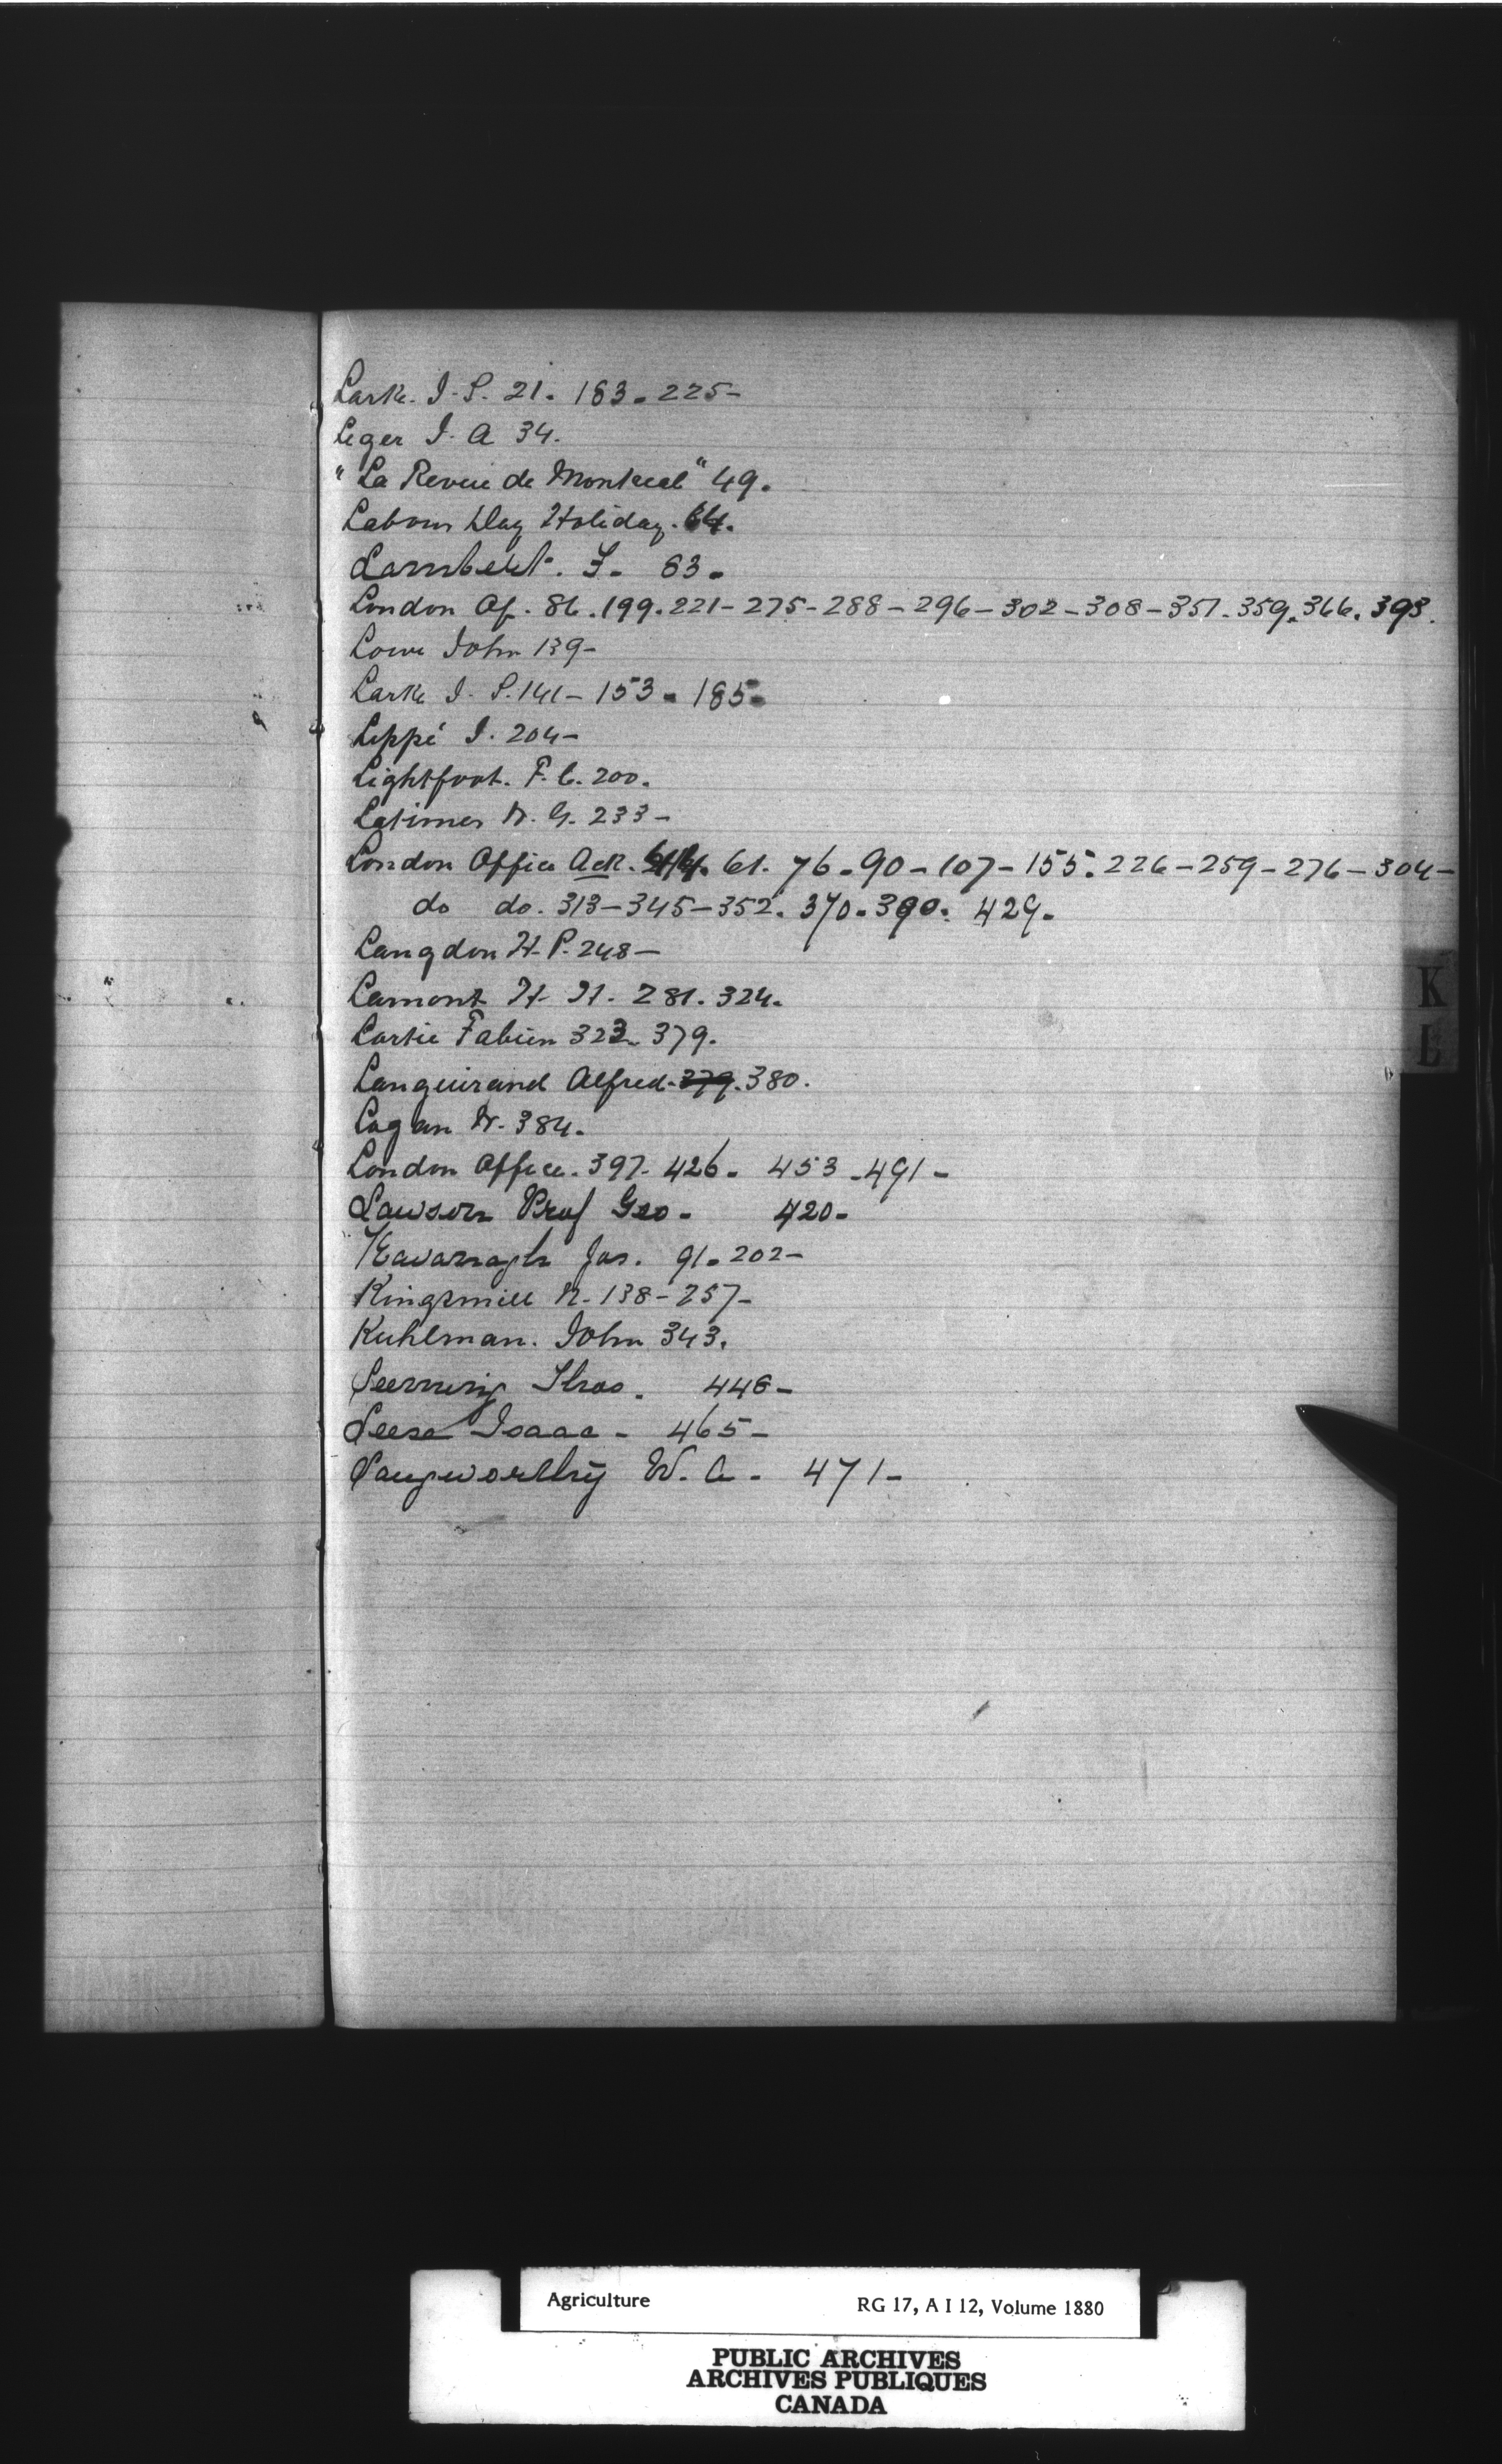 Larke. J. S. 21. 163. 225-
Leger J. A 34.
"La Revue de Montreal" 49.
Labour Day Holiday. 64.
Lambert. F. 63.
London Of. 86. 199. 221-275-288-296-302-308-351. 359. 366. 393.
Lowe John 139-
Larke J. S. 141-153. 185.
Lippé J. 204-
Lightfoot. F. C. 200.
Latimer W. G. 233-
London Office Ack. 61. 76. 90-107-155. 226-259-276-304-
do do. 313-345-352. 370. 390. 429.
Langdon H. P. 248-
Lamont H. H. 281. 324.
Lartie Fabien 323. 379.
Languirand Alfred. 379. 380.
Logan W. 384.
London Office. 397. 426. 453-491-
Lawson Prof Geo- 420-
Kavanagh Jas. 91. 202-
Kingsmill N. 138-257-
Kuhlman. John 343.
Leeming Thos. 448-
Leese Isaac- 465-
Langworthy W. A- 471-
K
L
Agriculture RG 17, A I 12, Volume 1880
PUBLIC ARCHIVES
ARCHIVES PUBLIQUES
CANADA